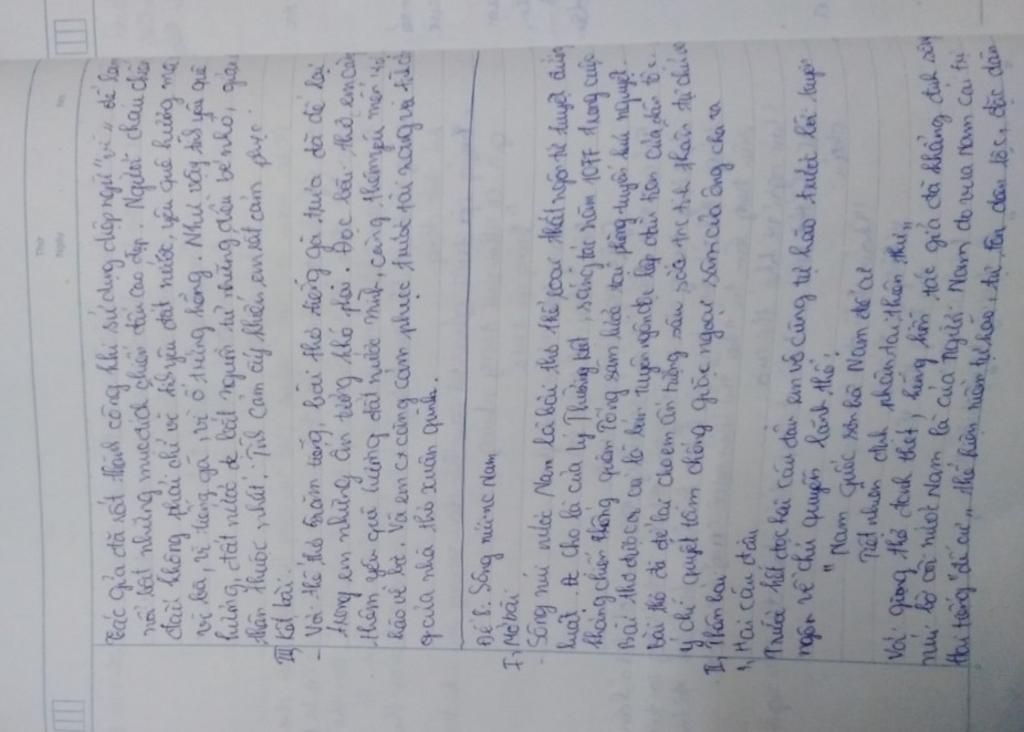 Thứ
Ngày
No.
Tác giả đã rất thành công khi sử dụng điệp ngữ "vì" để làm
nổi bật những mục đích chiến đấu cao đẹp. Người cháu chiến
đấu không phải chỉ vì tình yêu đất nước, yêu quê hương mà
vì bà, vì tiếng gà, vì ổ trứng hồng. Như vậy tình yêu quê
hương, đất nước bắt nguồn từ những điều bé nhỏ, giản
thân thuộc nhất. Tình cảm ấy khiến em rất cảm phục
III) Kết bài
- Với thể thơ 5 năm tiếng, bài thơ tiếng gà trưa đã để lại
trong em những ấn tượng khó phai. Đọc bài thơ em càng
thêm yêu quê hương đất nước mình, càng thấm yêu mến
bảo vệ bt. Và em cx càng cảm phục trước tài năng và tình cảm
của nhà thơ xuân quỳnh.
Đề 2. Sông núi nc Nam
I, Mở bài
- Sông núi nước Nam là bài thơ thể loại thất ngôn tứ tuyệt đường
luật. Đc cho là của Lý Thường Kiệt, sáng tác năm 1077 trong cuộc
kháng chiến chống quân Tống xâm lược tại phòng tuyến Như Nguyệt.
Bài thơ đc coi là bản tuyên ngôn độc lập đầu tiên của dân tộc.
Bài thơ đã để lại cho em ấn tượng sâu sắc
Ý chí quyết tâm chống giặc ngoại xâm của ông cha ta
II, Thân bài
1, Hai câu đầu
Trước hết đọc hai câu đầu em vô cùng tự hào trước lời tuyên
ngôn về chủ quyền lãnh thổ:
" Nam quốc sơn hà Nam đế cư
Tiệt nhiên định phận tại thiên thư"
Với giọng thơ đanh thép, hùng hồn tác giả đã khẳng định sông
núi bờ cõi nước Nam là của người Nam do vua Nam cai trị
Hai tiếng "đế cư" thể hiện niềm tự hào, tự tôn dân tộc, độc dân